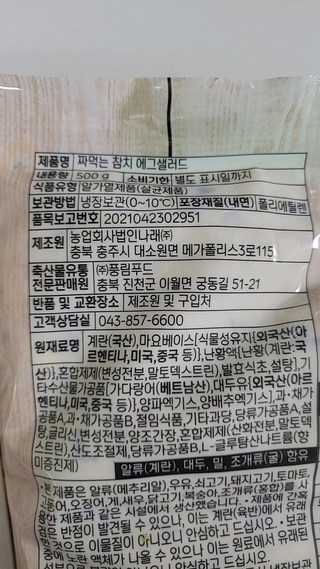 제품명 짜먹는 참치 에그샐러드
내용량 500 g 소비기한 별도 표시일까지
식품유형 알가열제품(살균제품)
보관방법 냉장보관(0~10℃) 포장재질(내면) 폴리에틸렌
품목보고번호 2021042302951
제조원 농업회사법인나래㈜
충북 충주시 대소원면 메가폴리스3로115
축산물유통 ㈜풍림푸드
전문판매원 충북 진천군 이월면 궁동길 51-21
반품 및 교환장소 제조원 및 구입처
고객상담실 043-857-6600
원재료명 계란(국산), 마요베이스{식물성유지[외국산(아
르헨티나,미국,중국 등)],난황액[난황(계란:국
산)],혼합제제(변성전분,말토덱스트린),발효식초,설탕},기
타수산물가공품[가다랑어(베트남산),대두유{외국산(아르
헨티나,미국,중국 등)},양파엑기스,양배추엑기스],과·채가
공품A,과·채가공품B,절임식품,기타과당,당류가공품A,설
탕,글리신,변성전분,양조간장,혼합제제(산화전분,말토덱
스트린),산도조절제,당류가공품B,L-글루탐산나트륨(향
미증진제)
알류(계란), 대두, 밀, 조개류(굴) 함유
•본 제품은 알류(메추리알),우유,쇠고기,돼지고기,토마토,
고등어,오징어,게,새우,닭고기,복숭아,조개류(홍합)를 사
용한 제품과 같은 시설에서 생산했습니다. •제품에 간혹
검은 반점이 발견될 수 있으나, 이는 계란(육반)에서 유래
으로 이물질이 아니오니 안심하고 드십시오. •보관
중에 노란 액체가 나올 수 있으나 이는 원료에서 유래된
안심하고 드십시오